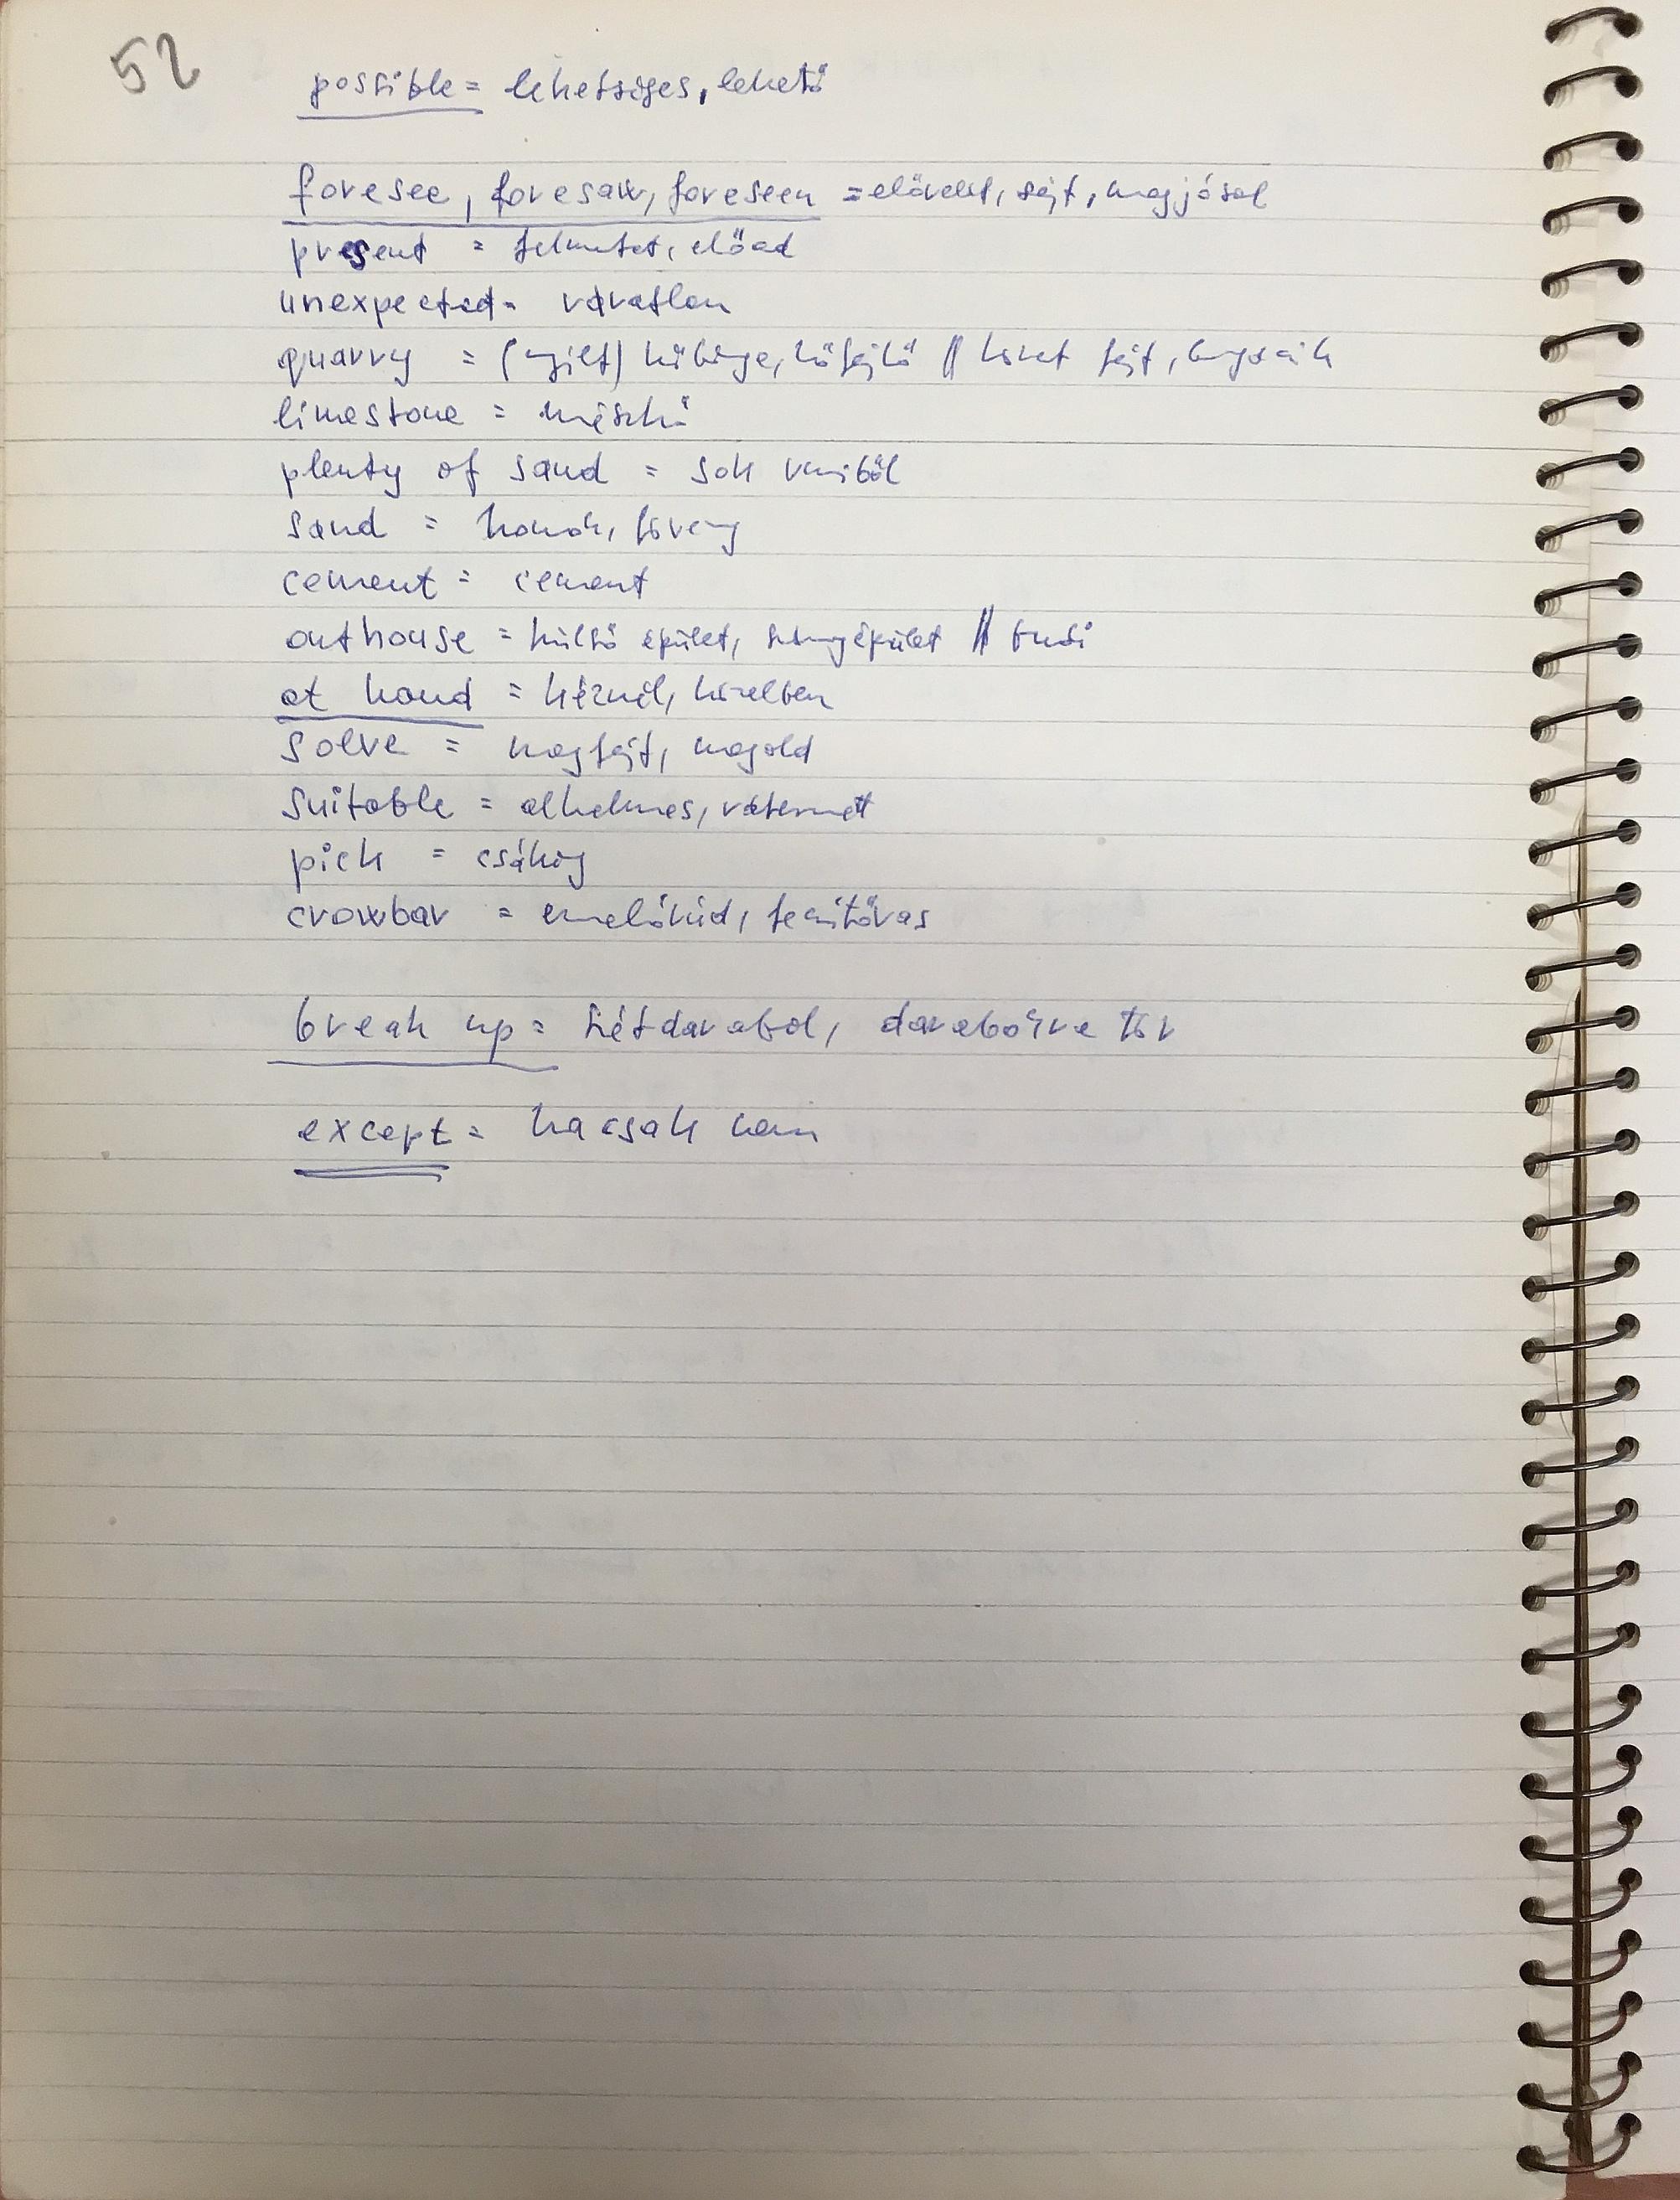 52
possible = lehetséges, lehető
foresee, foresaw, foreseen = előrelát, sejt, megjósol
present = felmutat, előad
unexpected = váratlan
quarry = (nyílt) kőbánya, kőfejtő // követ fejt, bányászik
limestone = mészkő
plenty of sand = sok
sand = homok, föveny
cement = cement
outhouse = külső épület, melléképület // budi
at hand = kéznél, közelben
solve = megfejt, megold
suitable = alkalmas, rátermett
pick = csákány
crowbar = emelőrúd, feszítővas
break up = szétdarabol, darabokra tör
except = hacsak nem